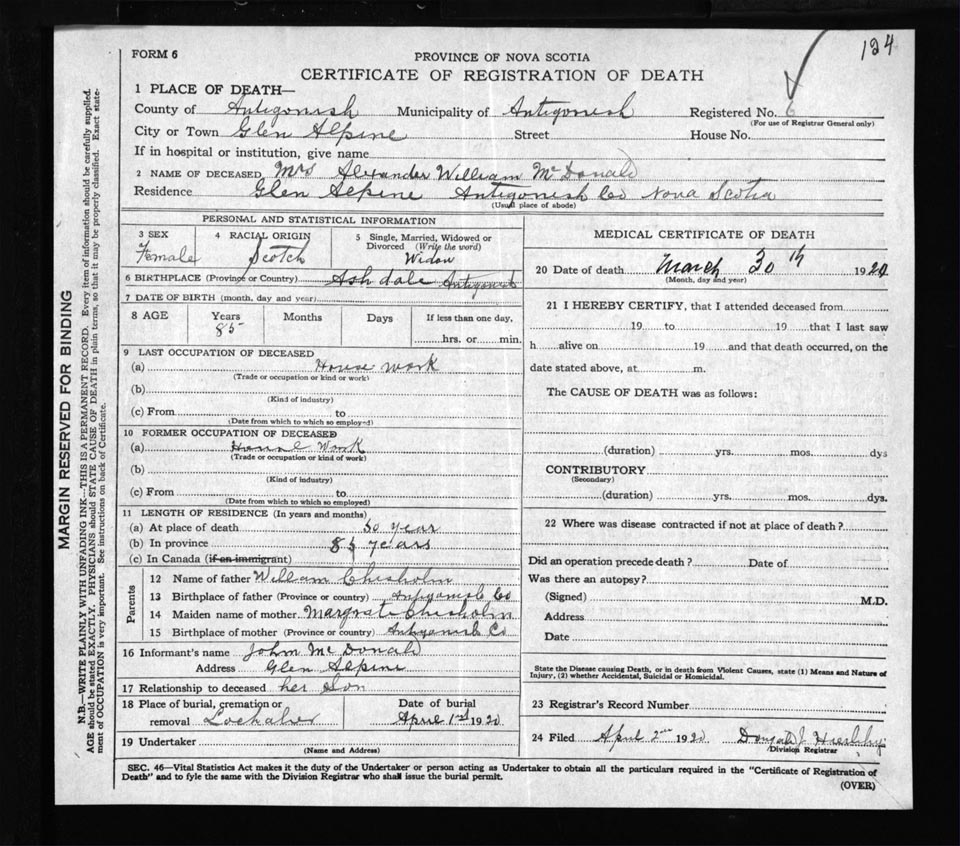 124
FORM 6
PROVINCE OF NOVA SCOTIA
CERTIFICATE OF REGISTRATION OF DEATH
1 PLACE OF DEATH—
County of Antigonish Municipality of Antigonish Registered No. 6
(For use of Registrar General only)
City or Town Glen Alpine Street House No.
If in hospital or institution, give name
2 NAME OF DECEASED Mrs Alexander William McDonald
Residence Glen Alpine Antigonish Co Nova Scotia
(Usual place of abode)
PERSONAL AND STATISTICAL INFORMATION
3 SEX
Female
4 RACIAL ORIGIN
Scotch
5 Single, Married, Widowed or
Divorced (Write the word)
Widow
6 BIRTHPLACE (Province or Country) Ashdale Antigonish
7 DATE OF BIRTH (month, day and year)
8 AGE Years Months Days If less than one day,
85 hrs. or min.
9 LAST OCCUPATION OF DECEASED
(a) House work
(Trade or occupation or kind or work)
(b)
(Kind of industry)
(c) From to
(Date from which to which so employed)
10 FORMER OCCUPATION OF DECEASED
(a) House Work
(Trade or occupation or kind of work)
(b)
(Kind of industry)
(c) From to
(Date from which to which so employed)
11 LENGTH OF RESIDENCE (In years and months)
(a) At place of death 50 year
(b) In province 85 years
(c) In Canada (if an immigrant)
Parents
12 Name of father William Chisholm
13 Birthplace of father (Province or country) Antigonish Co
14 Maiden name of mother Margrate Chisholm
15 Birthplace of mother (Province or country) Antigonish Co
16 Informant's name John McDonald
Address Glen Alpine
17 Relationship to deceased her Son
18 Place of burial, cremation or
removal Lochaber
Date of burial
April 1st 1920
19 Undertaker
(Name and Address)
MEDICAL CERTIFICATE OF DEATH
20 Date of death March 30th 1920
(Month, day and year)
21 I HEREBY CERTIFY, that I attended deceased from
19 to 19 that I last saw
h alive on 19 and that death occurred, on the
date stated above, at m.
The CAUSE OF DEATH was as follows:
(duration) yrs. mos. dys
CONTRIBUTORY
(Secondary)
(duration) yrs. mos. dys.
22 Where was disease contracted if not at place of death?
Did an operation precede death? Date of
Was there an autopsy?
(Signed) M.D.
Address
Date
State the Disease causing Death, or in death from Violent Causes, state (1) Means and Nature of
Injury, (2) whether Accidental, Suicidal or Homicidal.
23 Registrar's Record Number
24 Filed April 2nd 1920
Division Registrar
SEC. 46—Vital Statistics Act makes it the duty of the Undertaker or person acting as Undertaker to obtain all the particulars required in the "Certificate of Registration of
Death" and to fyle the same with the Division Registrar who shall issue the burial permit.
(OVER)
MARGIN RESERVED FOR BINDING
N.B.—WRITE PLAINLY WITH UNFADING INK—THIS IS A PERMANENT RECORD. Every item of information should be carefully supplied.
AGE should be stated EXACTLY. PHYSICIANS should STATE CAUSE OF DEATH in plain terms, so that it may be properly classified. Exact state-
ment of OCCUPATION is very important. See instructions on back of Certificate.